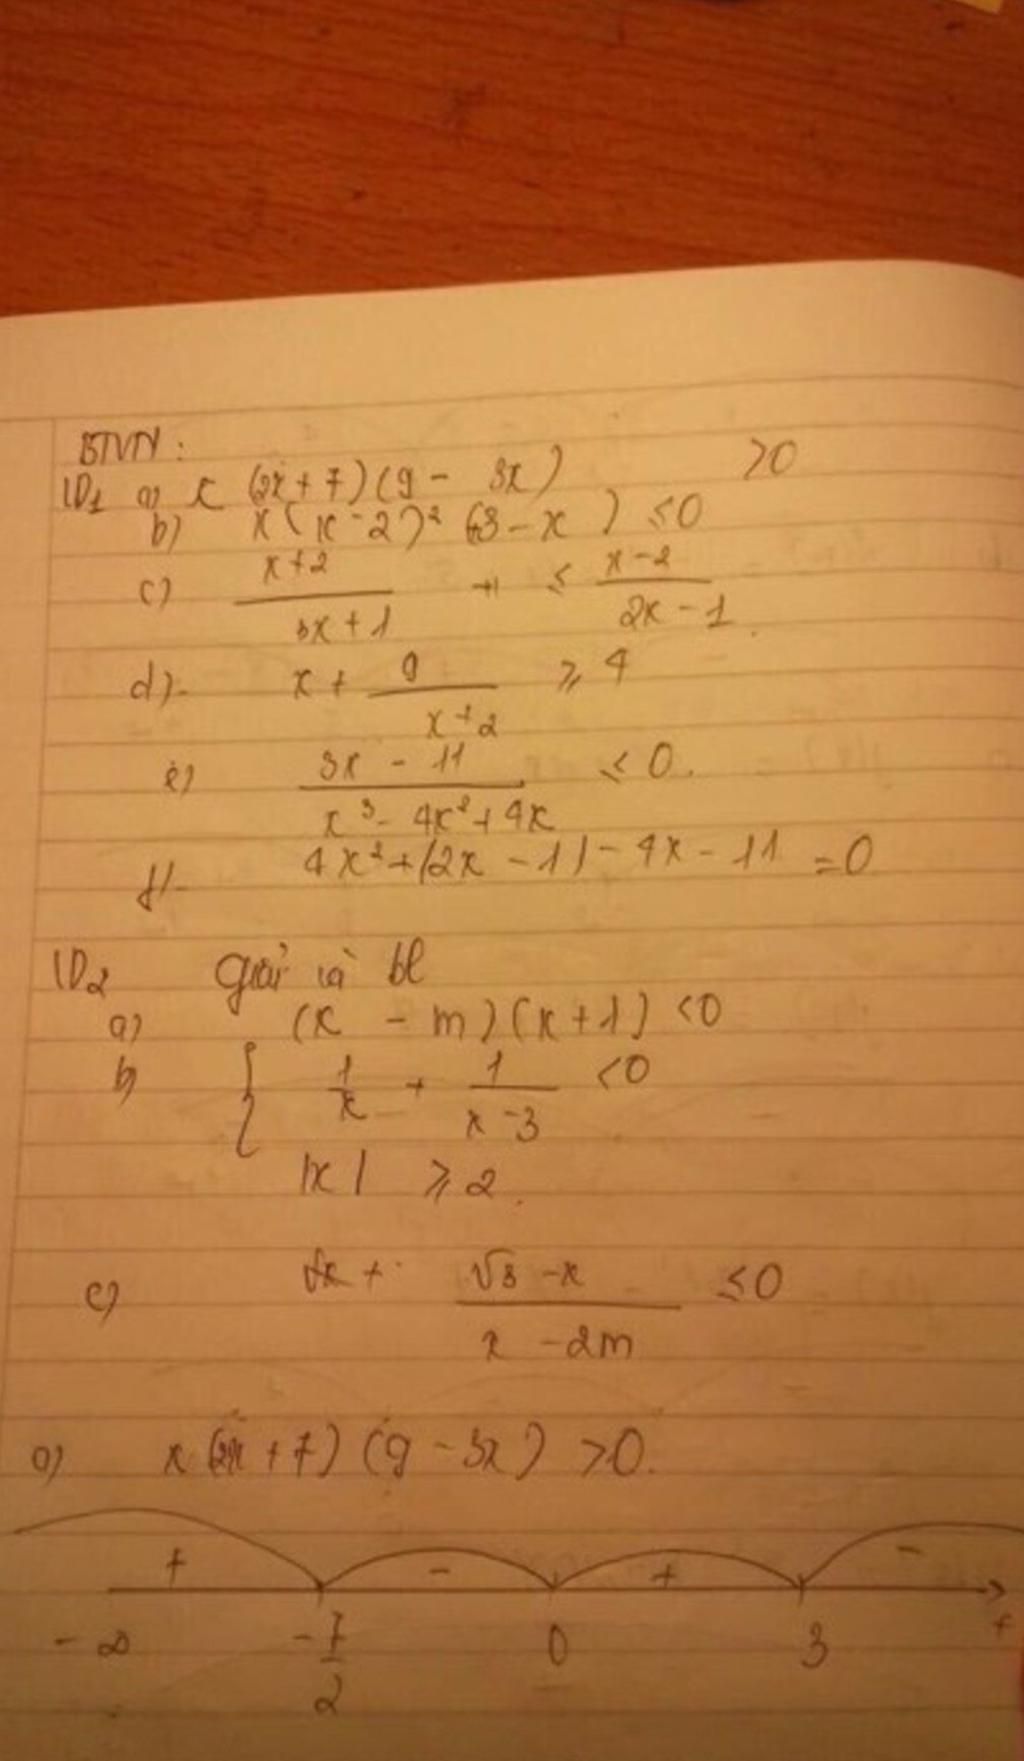 BTVN :
1D1 a) x (2x + 7) (9 - 3x) > 0
b) x (x - 2)² (3 - x) ≤ 0
c) x + 2 / 3x + 1 ≤ x - 2 / 2x - 1
d) x + 9 / x + 2 ≥ 4
e) 3x - 11 / x³ - 4x² + 4x ≤ 0.
f) 4x² + |2x - 1| - 4x - 11 = 0
1D2 Giải và bl
a) (x - m) (x + 1) < 0
b) { 1 / x + 1 / x - 3 < 0
|x| ≥ 2.
c) √3 - x / x - 2m ≤ 0
a) x (2x + 7) (9 - 3x) > 0.
+ - + -
- ∞ - 7/2 0 3 +